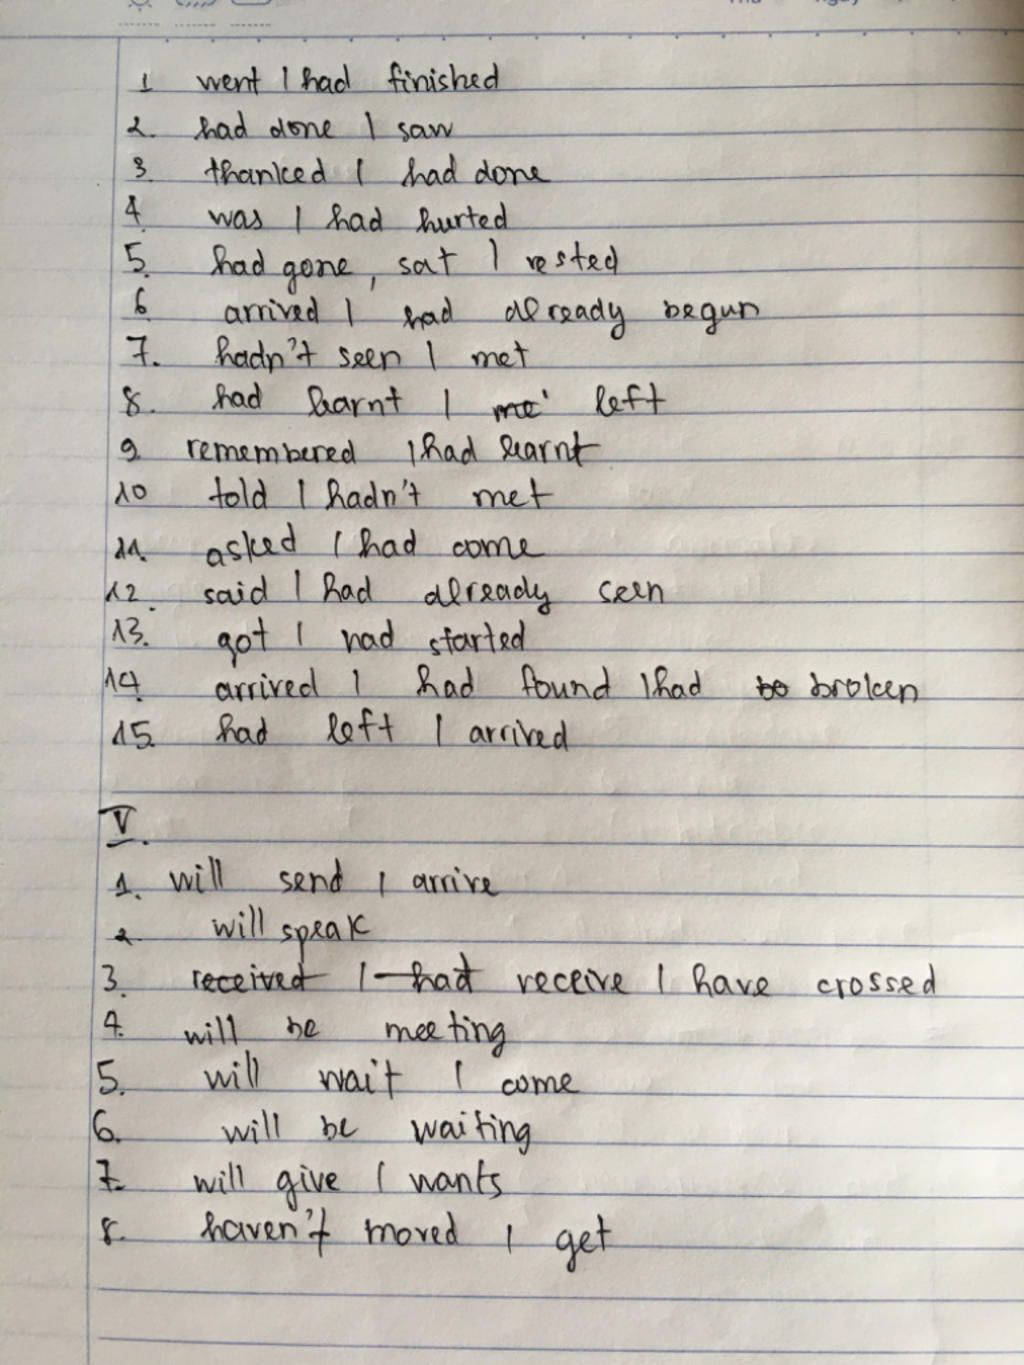 Thứ ngày
1 went / had finished
2. had done / saw
3. thanked / had done
4. was / had hurted
5. had gone, sat / rested
6 arrived / had already begun
7. hadn't seen / met
8. had learnt / me left
9. remembered / had learnt
10 told / hadn't met
11. asked / had come
12. said / had already seen
13. got / had started
14. arrived / had found / had bo broken
15. had left / arrived
V.
1. will send / arrive
2. will speak
3. received / had receive / have crossed
4. will be meeting
5. will wait / come
6. will be waiting
7. will give / wants
8. haven't moved / get